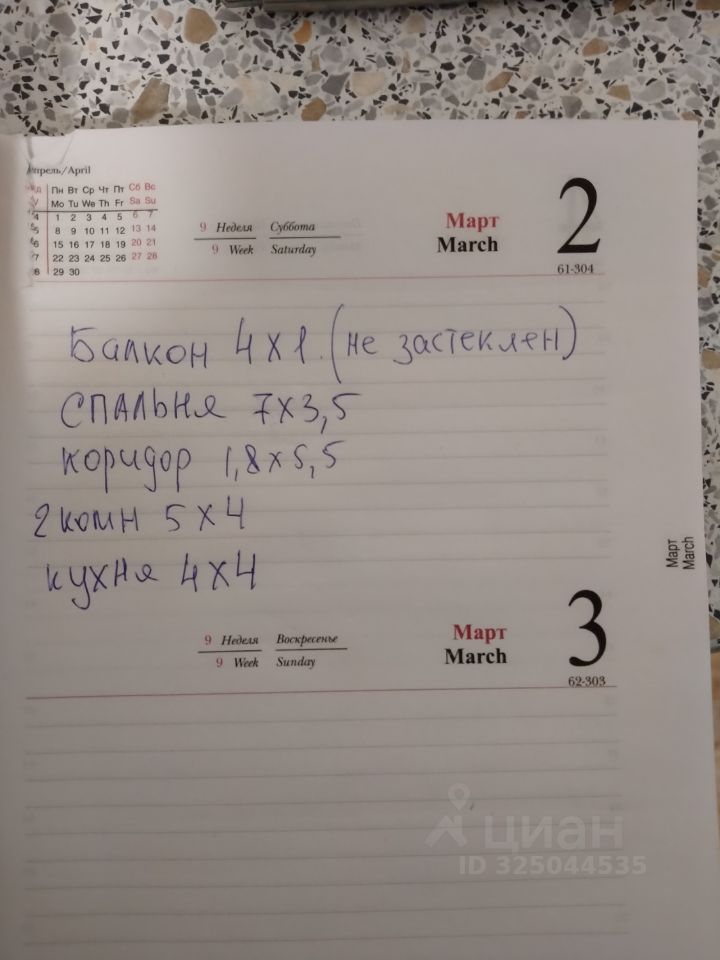 Апрель/April
Пн Вт Ср Чт Пт Сб Вс
Mo Tu We Th Fr Sa Su
1 2 3 4 5 6 7
8 9 10 11 12 13 14
15 16 17 18 19 20 21
22 23 24 25 26 27 28
29 30
9 Неделя Суббота
9 Week Saturday
Март
March
2
61-304
Балкон 4х1. (не застеклен)
СПАЛЬНЯ 7х3,5
коридор 1,8х5,5
2 комн 5х4
кухня 4х4
Март
March
9 Неделя Воскресенье
9 Week Sunday
Март
March
3
62-303
циан
ID 325044535